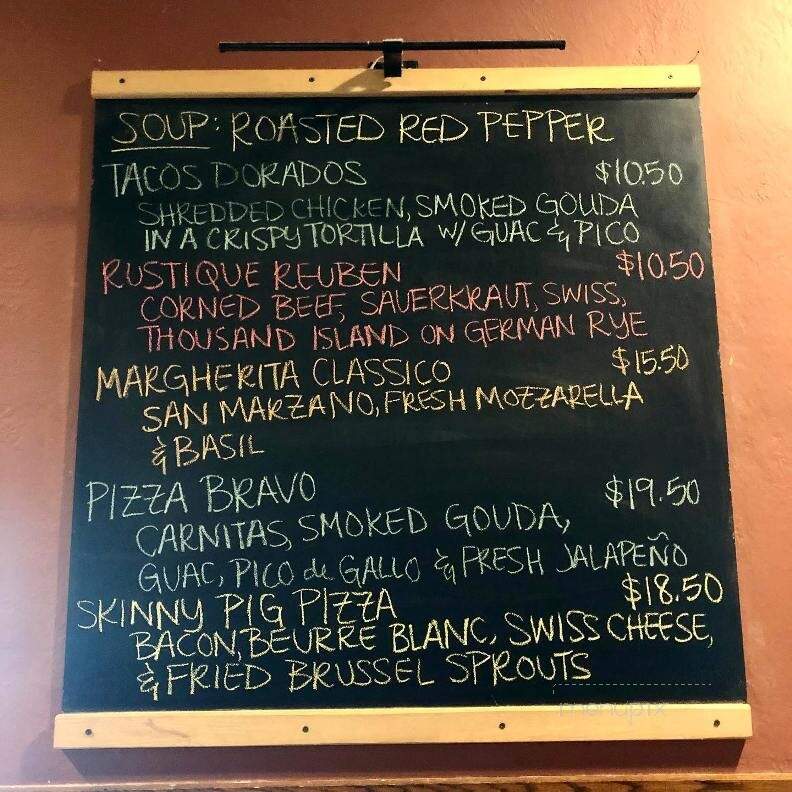 SOUP: ROASTED RED PEPPER
TACOS DORADOS $10.50
SHREDDED CHICKEN, SMOKED GOUDA
IN A CRISPY TORTILLA W/ GUAC & PICO
RUSTIQUE REUBEN $10.50
CORNED BEEF, SAUERKRAUT, SWISS,
THOUSAND ISLAND ON GERMAN RYE
MARGHERITA CLASSICO $15.50
SAN MARZANO, FRESH MOZZARELLA
& BASIL
PIZZA BRAVO $19.50
CARNITAS, SMOKED GOUDA,
GUAC, PICO de GALLO & FRESH JALAPEÑO
SKINNY PIG PIZZA $18.50
BACON, BEURRE BLANC, SWISS CHEESE,
& FRIED BRUSSEL SPROUTS
menupix